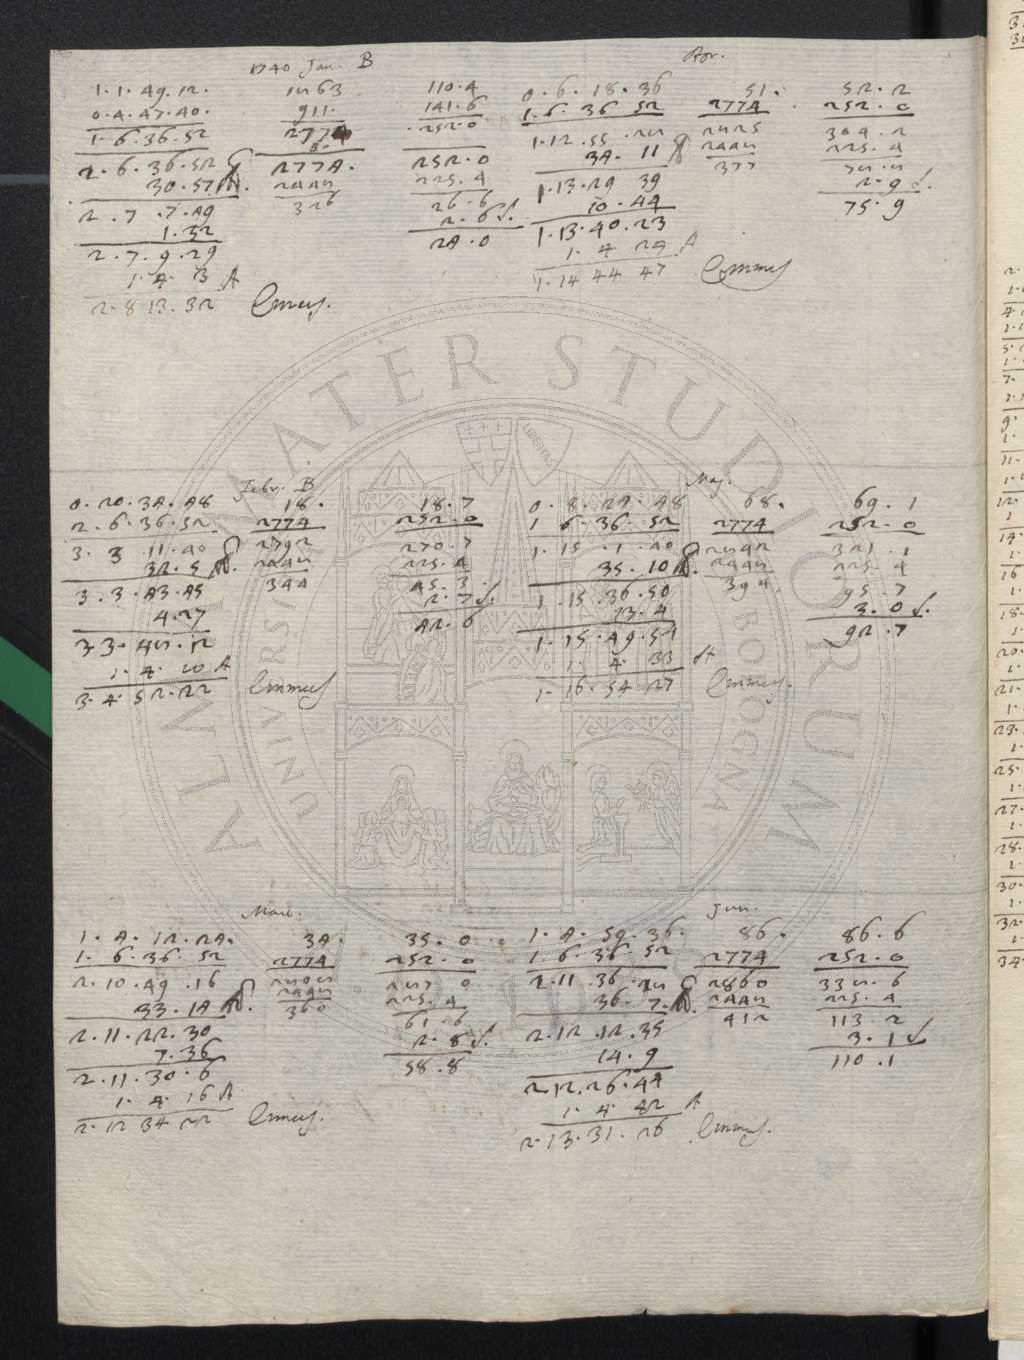 1740 Jan. B
1. 1. 49. 12.
0. 4. 47. 40.
1. 6. 36. 52
2. 6. 36. 52
30. 57
2. 7. 7. 49
1. 32
2. 7. 9. 29
1. 4. 3 A
2. 8 13. 32
1863
911.
2774
2774.
2448
326
110. 4
141. 6
252. 0
252. 0
225. 4
26. 6
2. 6
24. 0
Apr.
0. 6. 18. 36
1. 6. 36 52
1. 12. 55. 28
34. 11
1. 13. 29 39
10. 44
1. 13. 40. 23
1. 4. 24 A
1. 14 44 47
51.
2774
2825
2448
377
52. 2
252. 0
304. 2
225. 4
78. 8
2. 9
75. 9
Febr. B
0. 20. 34. 48
2. 6. 36. 52
3. 3 11. 40
32. 5
3. 3. 43. 45
4. 27
3. 3. 48. 12
1. 4. 10 A
3. 4. 52. 22
18.
2774
2792
2448
344
18. 7
252. 0
270. 7
225. 4
45. 3
2. 7
42. 6
Maj.
0. 8. 24. 48
1 6. 36. 52
1. 15. 1. 40
35. 10
1. 15. 36. 50
13. 4
1. 15. 49. 54
1. 4. 33 A
1. 16. 54 27
68.
2774
2842
2448
394
69. 1
252. 0
321. 1
225. 4
95. 7
3. 0
92. 7
Mart.
1. 4. 12. 24.
1. 6. 36. 52
2. 10. 49. 16
33. 14
2. 11. 22. 30
7. 36
2. 11. 30. 6
1. 4. 16 A
2. 12 34 22
34.
2774
2808
2448
360
35. 0
252. 0
287 0
225. 4
61. 6
2. 8
58. 8
Jun.
1. 4. 59. 36.
1. 6. 36 52
2. 11. 36. 28
36. 7.
2. 12. 12. 35
14. 9
2. 12. 26. 44
1. 4. 42 A
2. 13. 31. 26
86.
2774
2860
2448
412
86. 6
252. 0
338. 6
225. 4
113. 2
3. 1
110. 1
ALMA MATER STUDIORUM
UNIVERSITÀ DI BOLOGNA
LIBERTAS